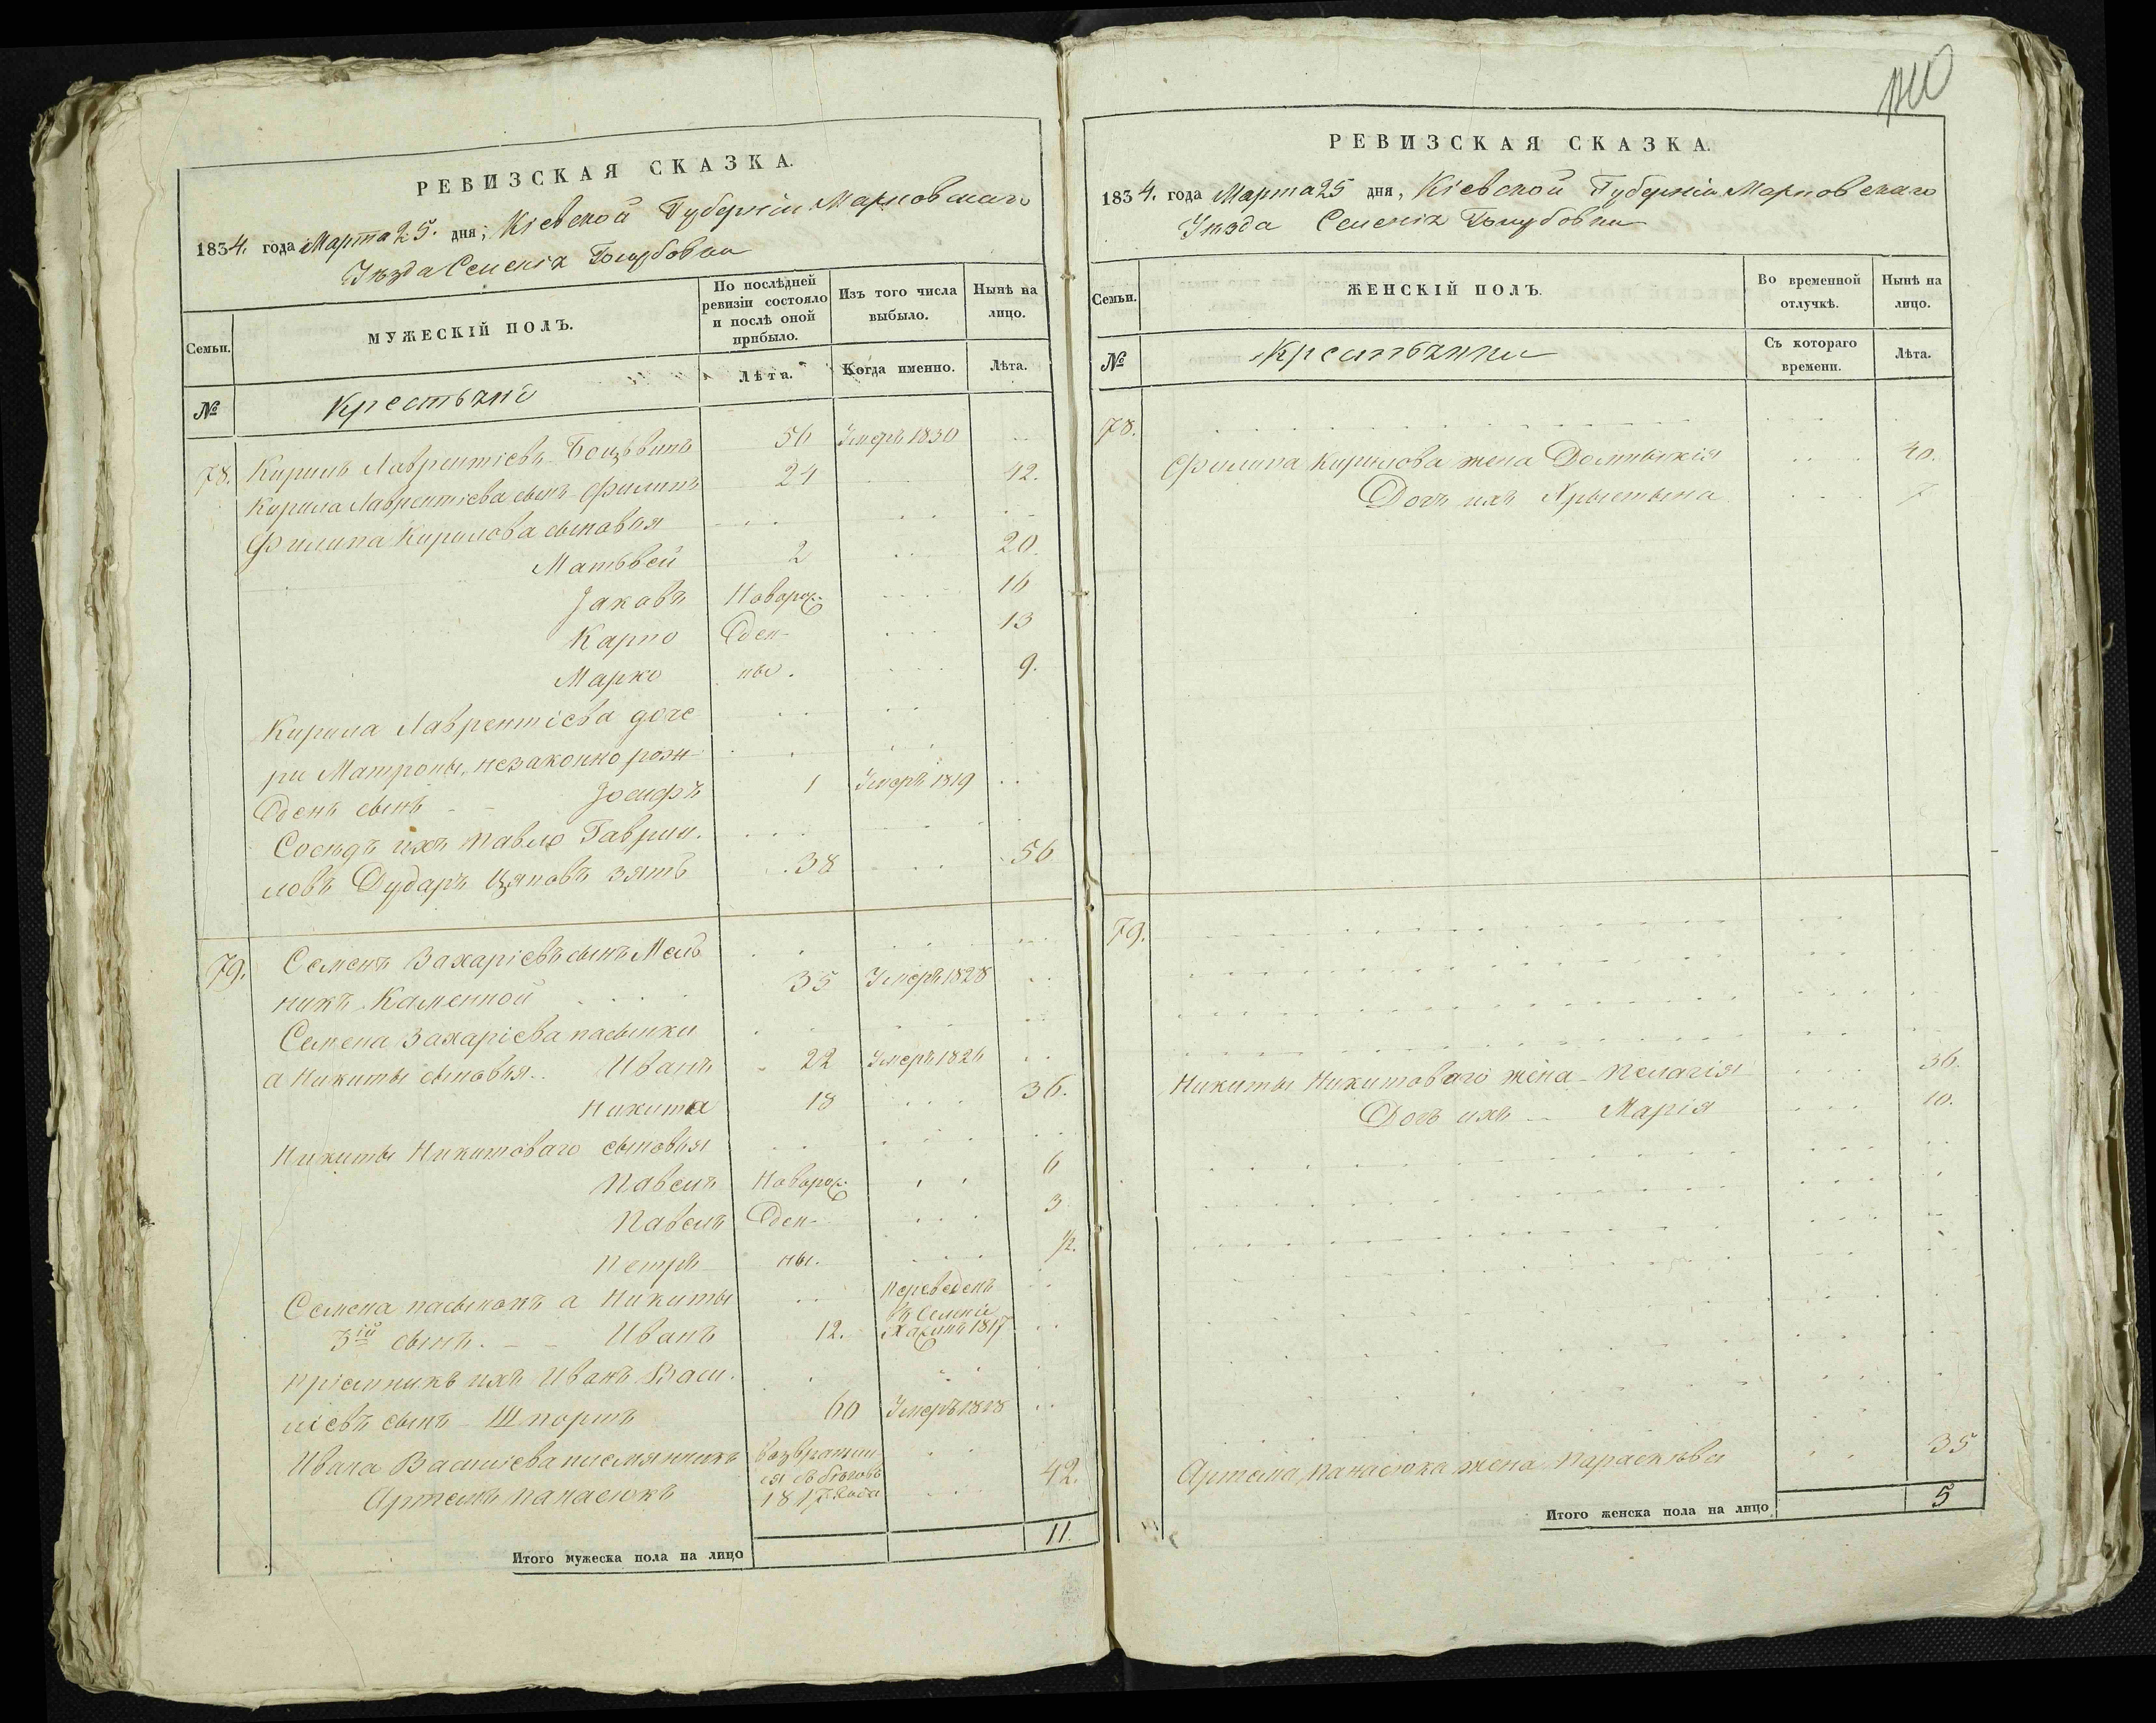 РЕВИЗСКАЯ СКАЗКА.
1834. года Марта 25. дня; Кіевской Губерніи
Уѣзда Селенія Голубовки
Семьи.
МУЖЕСКІЙ ПОЛЪ.
По послѣдней ревизіи состояло и послѣ оной прибыло.
Изъ того числа выбыло.
Нынѣ на лицо.
№
Крестьяне
Лѣта.
Когда именно.
Лѣта.
78. Кирилъ Лаврентіевъ 56 Умеръ 1830
Кирила Лаврентіева сынъ Филипъ 24 42.
Филипа Кирилова сыновья
Матвѣй 2 20.
Іаковъ Новорож- 16
Карпо ден- 13
Марко ны. 9.
Кирила Лаврентіева доче
ри Матроны, незаконно рож-
денъ сынъ Іосифъ 1 Умеръ 1819
Сосѣдъ ихъ Павло Гаври-
ловъ Дударъ зять 38 56
79. Семенъ Захаріевъ сынъ Мель
никъ Каменной 35 Умеръ 1828
Семена Захаріева пасынки
а Никиты сыновья.. Иванъ 22 Умеръ 1826
Никита 18 36.
Никиты Никитоваго сыновья
Павелъ Новорож- 6
Павелъ ден- 3
Петръ ны. ½.
Семена пасынокъ а Никиты Переведенъ
3ій сынъ. Иванъ 12. въ Селеніе 1817
Пріемникъ ихъ Иванъ Васи-
ліевъ сынъ Шпортъ 60 Умеръ 1828
Ивана Василіева племянникъ возвратил-
Артемъ Панасюкъ ся съ бѣговъ 1817 года 42.
Итого мужеска пола на лицо 11.
РЕВИЗСКАЯ СКАЗКА.
1834. года Марта 25 дня, Кіевской Губерніи
Уѣзда Селенія Голубовки
Семьи.
ЖЕНСКІЙ ПОЛЪ.
Во временной отлучкѣ.
Нынѣ на лицо.
№
Крестьянки
Съ котораго времени.
Лѣта.
78.
Филипа Кирилова жена Домникія 40.
Дочь ихъ Хрыстына 7
79.
Никиты Никитоваго жена Пелагія 36.
Дочь ихъ Марія 10.
Артема Панасюка жена Параскѣва 35
Итого женска пола на лицо 5